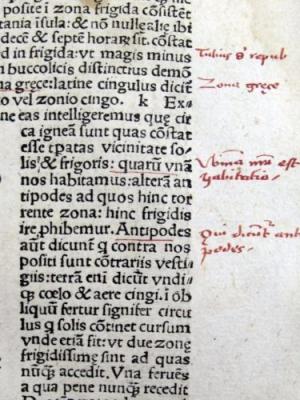 positę i zona frigida cōsistēt
tania isula: & nō nullę alię ibi
decē & septē horaꝝ sit. cōstat
ed in frigida: vt magis minus
n buccolicis distinctius demō
na gręce: latine cingulus dicit̄
to vel zonio cingo. k Ex-
ne eas intelligeremus que cir
ca ignea sunt quas cōstat
esse tꝑatas vicinitate so-
lis & frigoris: quarū vnā
nos habitamus: alterā an
tipodes ad quos hinc tor
rente zona: hinc frigidis
ire ꝓhibemur. Antipodes
aūt dicunt̄ ꝙ contra nos
positi sunt cōtrariis vesti-
giis: terrā eni dicūt vndi-
ꝙ cœlo & aere cingi. i ob
liquū fertur signifer circu
lus q solis cōtinet cursum
vnde etiā fit: vt due zonę
frigidissimę sint ad quas
nunꝙ accedit. Vna feruēs
a qua pene nunꝙ recedit
Tulius repub
Zona gręce
est
habitatio
Qui dicunt̄ anti
podes